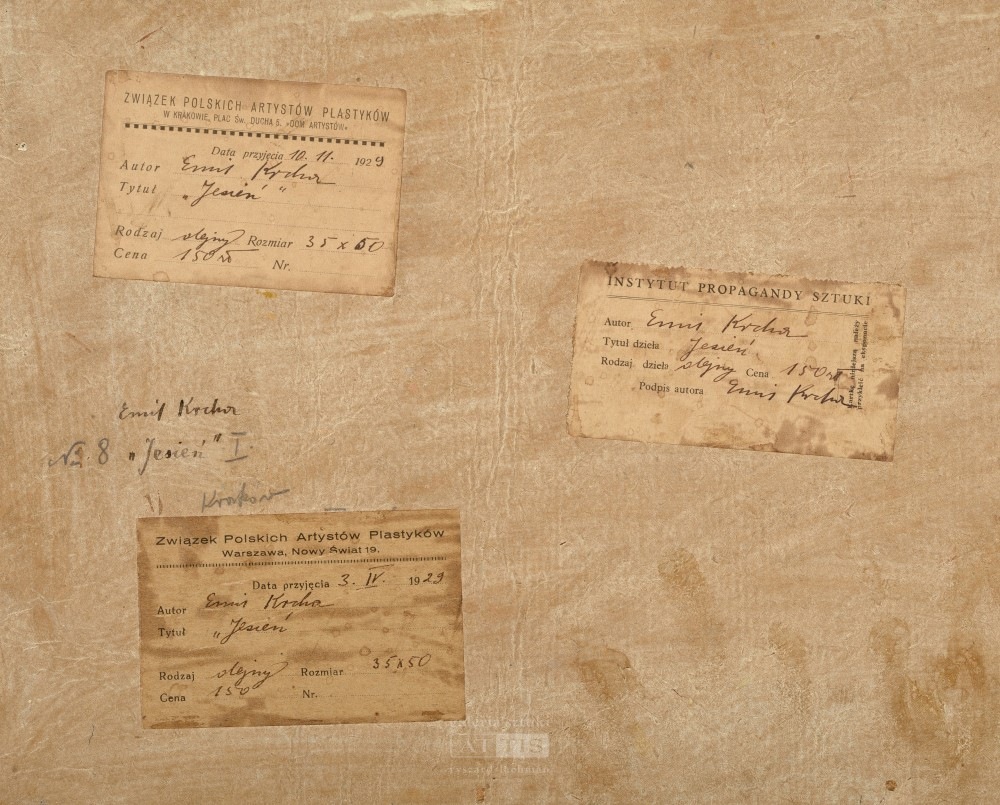 ZWIĄZEK POLSKICH ARTYSTÓW PLASTYKÓW
W KRAKOWIE, PLAC ŚW. DUCHA 5. »DOM ARTYSTÓW«
Data przyjęcia 10. 11. 1929
Autor Emil Krcha
Tytuł „Jesień"
Rodzaj olejny Rozmiar 35 x 50
Cena 150 zł Nr.
INSTYTUT PROPAGANDY SZTUKI
Autor Emil Krcha
Tytuł dzieła Jesień
Rodzaj dzieła olejny Cena 150 zł
Podpis autora Emil Krcha
Kartkę niniejszą należy
przykleić na
Emil Krcha
No. 8 „Jesień" I.
Kraków
Związek Polskich Artystów Plastyków
Warszawa, Nowy Świat 19.
Data przyjęcia 3. IV. 1929
Autor Emil Krcha
Tytuł „Jesień
Rodzaj olejny Rozmiar 35x50
Cena 150 Nr.
sztuki
ATTIS